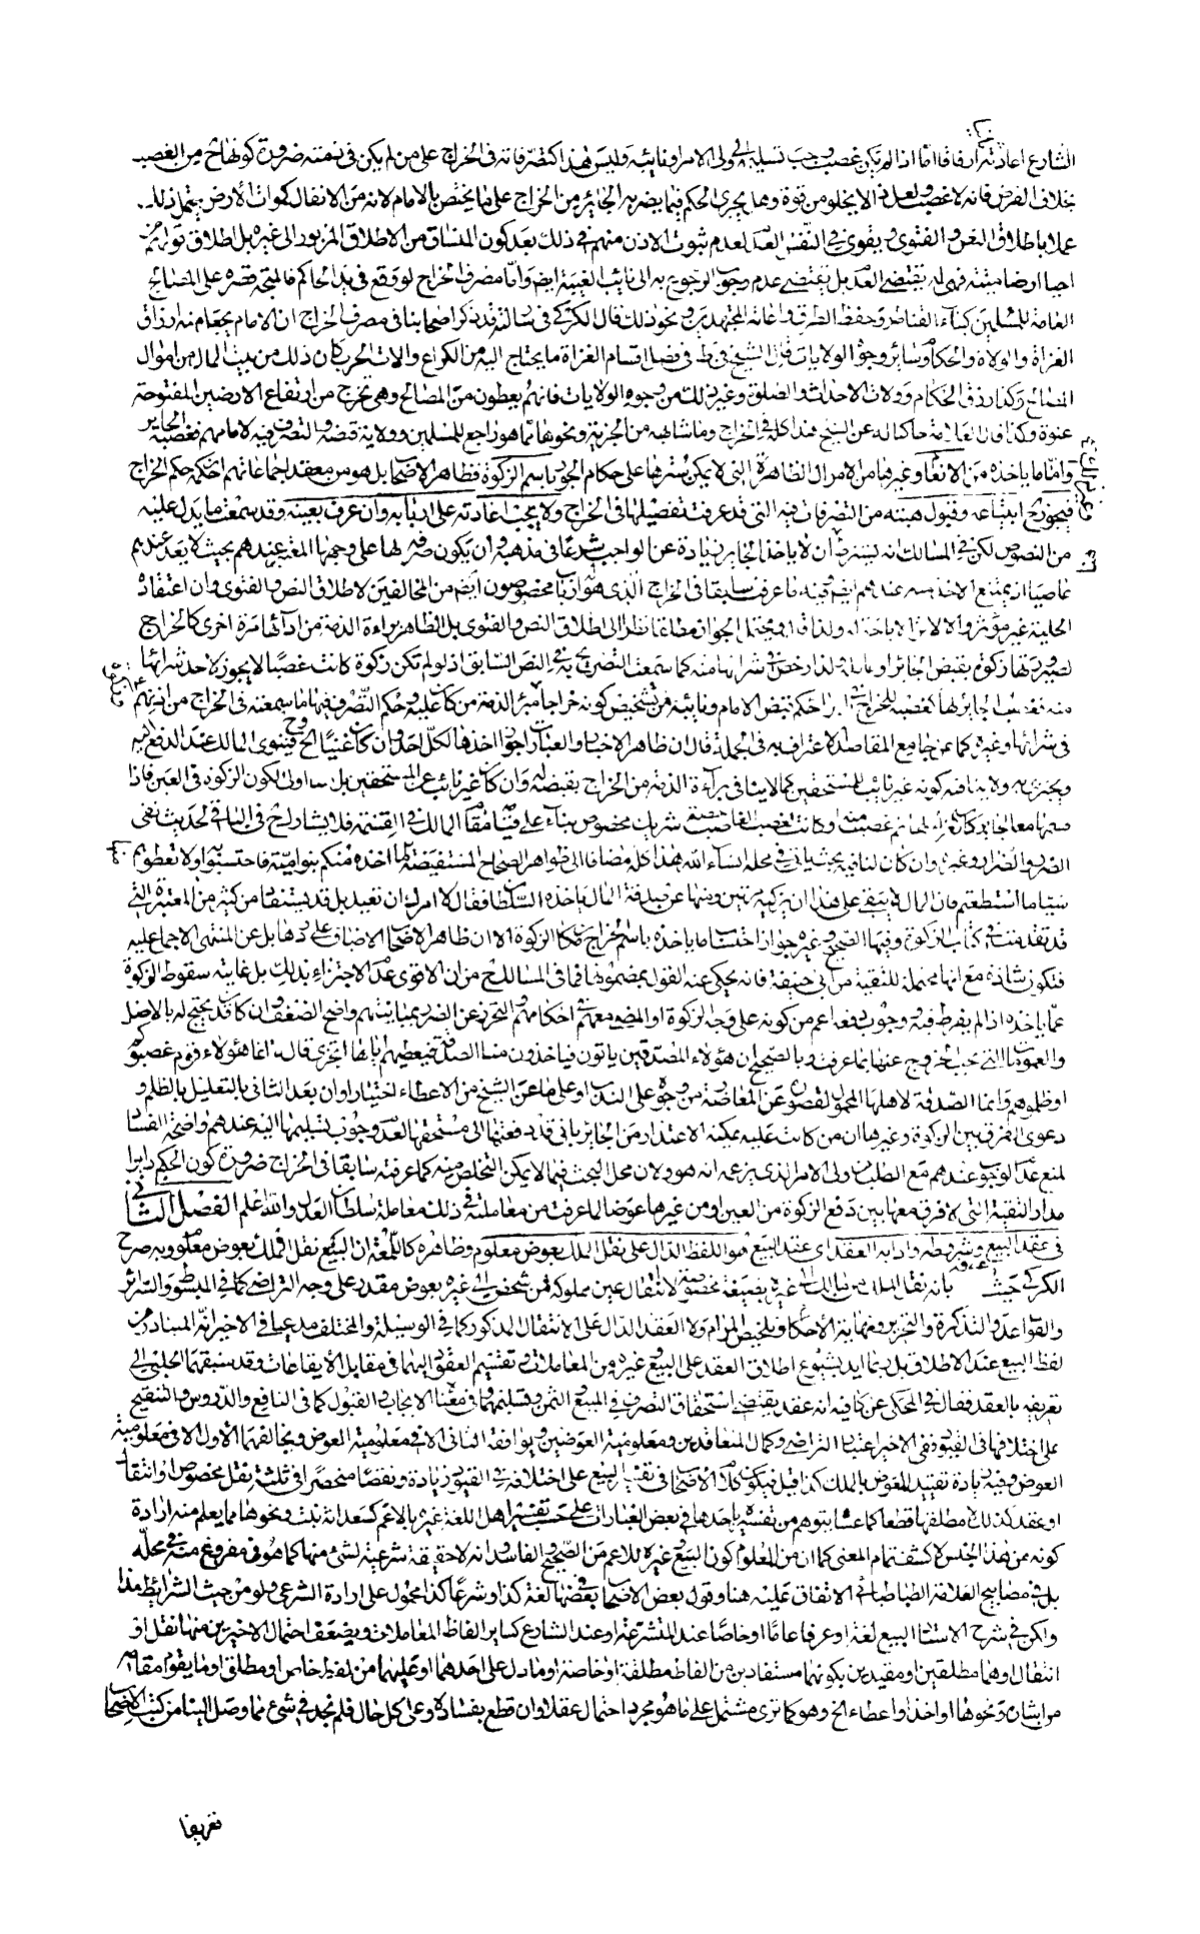 الشارع اعادته اتفاقا اما اذا لم يكن غصب وجب تسليمه الى ولى الامر او نائبه وليس هذا كتصرفاته فى الخراج على من لم يكن فى ذمته ضرورة كونها من الغصب
بخلاف الفرض فانه لا غصب ولعله لا يخلو من قوة وهل يجرى الحكم فيما يضربه الجائر من الخراج على ما يختص بالامام لانه من الانفال كموات الارض يحتمل ذلك
عملا باطلاق النص والفتوى ويقوى فى النفس العدم لعدم ثبوت الاذن منهم فى ذلك بعد كون المنساق من الاطلاق المزبور الى غيره بل اطلاق قولهم من
احيا ارضا ميتة فهى له يقتضى العدم بل يقتضى عدم وجوب الرجوع به الى نائب الغيبة ايضا واما مصرف الخراج لو وقع فى يد الحاكم فالمتجه قصره على المصالح
العامة للمسلمين كبناء القناطر وحفظ الطرق واعانة المجتهدين ونحو ذلك قال الكركى فى رسالته قد ذكر اصحابنا فى مصرف الخراج ان الامام يجعل منه ارزاق
الغزاة والولاة والحكام وسائر وجوه الولايات قال الشيخ فى ط فى فصل اقسام الغزاة ما يحتاج اليه من الكراع والات الحرب كان ذلك من بيت المال من اموال
المصالح وكذا رزق الحكام وولاة الاحداث والصلوة وغير ذلك من وجوه الولايات فانهم يعطون من المصالح وهى تخرج من ارتفاع الارضين المفتوحة
عنوة وكذا قال العلامة حاكيا له عن الشيخ هذا كله فى الخراج وما شابهه من الجزية ونحوها مما هو راجع للمسلمين وولاية قبضه والتصرف فيه لامامهم فغصبه الجائر
واما ما ياخذه من الانعام وغيرها من الاموال الظاهرة التى لا يمكن سترها على حكام الجور باسم الزكوة فظاهر الاصحاب بل هو من معقد اجماعاتهم ان حكمه حكم الخراج
فيجوز ح ابتياعه وقبول هبته من التصرفات فيه التى قد عرفت تفصيلها فى الخراج ولا يجب اعادته على اربابه وان عرف بعينه وقد سمعت ما يدل عليه
من النصوص لكن فى المسالك انه يشترط ان لا ياخذ الجائر زيادة عن الواجب شرعا فى مذهبه وان يكون صرفه لها على وجهها المعتبر عندهم بحيث لا يعد عندهم
عاصيا اذ يمتنع الاخذ منه عندهم ايضا وفيه ما عرفت سابقا فى الخراج الذى هو اربابه مخصوصون ايضا من المخالفين لاطلاق النص والفتوى وان اعتقاد
الحلية غير مؤثر والا لاثر الا باحة ولذا قال ويحتمل الجواز مطلقا نظرا الى اطلاق النص والفتوى بل الظاهر براءة الذمة من ادائها مرة اخرى كالخراج
لصيرورتها زكوة بقبض الجائر او عامله ولذا رخص فى شرائها منه كما سمعت التصريح به فى النص السابق اذ لو لم تكن زكوة كانت غصبا لا يجوز لاحد شرائها
منه فغصب الجائر لها كغصبه للخراج
فى شرائها وغيره كما عن جامع المقاصد الاعتراف به فى الجملة قال ان ظاهر الاخبار والعبارات جواز اخذها لكل احد وان كان غنيا الخ وح فينوى المالك عند الدفع اليه
ويجتزى به ولا ينافيه كونه غير نائب للمستحقين كما لا ينافى براءة الذمة من الخراج بقبضه له وان كان غير نائب عن المستحقين بل
الضرر والضرار وغيره وان كان لنا فيه بحث ياتى فى محله انشاء الله هذا كله مضافا الى ظواهر الصحاح المستفيضة ما اخذه منكم بنو امية فاحتسبوا ولا تعطوهم
شيئا ما استطعتم فان المال لا يبقى على هذا ان يزكيه مرتين ومنها عن صدقة المال ياخذه السلطان فقال لا امرك ان تعيد بل قد يستفاد من كثير من المعتبرة التى
قد تقدمت فى كتاب الزكوة وفيها الصحيح وغيره جواز احتساب ما ياخذه باسم الخراج مكان الزكوة الا ان ظاهر الاصحاب الاتفاق على ردها بل عن المنتهى الاجماع عليه
فتكون شاذة مع انها محتملة للتقية من ابى حنيفة فانه يحكى عنه القول بمضمونها فما فى المسالك من ان الاقوى عدم الاجتزاء بذلك بل غايته سقوط الزكوة
عما ياخذه اذا لم يفرط فيه ووجوب دفعه اعم من كونه على وجه الزكوة او المضى معهم فى احكامهم والتحرز عن الضرر بمباينتهم واضح الضعف وان كان قد يحتج له بالاصل
والعمومات التى يجب الخروج عنها بما عرفت وبالصحيح ان هؤلاء المصدقين ياتون فياخذون منا الصدقة فنعطيهم اياها ايجزى قال لا انما هؤلاء قوم غصبوكم
او ظلموكم وانما الصدقة لاهلها المحمول لقصوره عن المعارضة من وجوه على الندب او على ما عن الشيخ من الاعطاء اختيارا وان بعد الثانى بالتعليل بالظلم و
دعوى الفرق بين الزكوة وغيرها ان من كانت عليه يمكنه الاعتذار من الجائر بانى قد دفعتها الى مستحقها لعدم وجوب تسليمها اليه عندهم واضحة الفساد
لمنع عدم الوجوب عندهم مع الطلب من ولى الامر الذى يزعم انه هو ولان محل البحث فيما لا يمكن التخلص منه كما عرفته سابقا فى الخراج ضرورة كون الحكم دائرا
مدار التقية التى لا فرق معها بين دفع الزكوة من العين او من غيرها عوضا لما عرفت من معاملته فى ذلك معاملة سلطان العدل والله اعلم الفصل الثانى
فى عقد البيع وشروطه وادابه العقد اى عقد البيع هو اللفظ الدال على نقل الملك بعوض معلوم وظاهره كاللمعة ان البيع نقل الملك بعوض معلوم وبه صرح
الكركى حيث عرفه بانه نقل الملك من مالك الى غيره بصيغة مخصوصة لا انتقال عين مملوكة من شخص الى غيره بعوض مقدر على وجه التراضى كما فى المبسوط والسرائر
والقواعد والتذكرة والتحرير ونهاية الاحكام وتلخيص المرام ولا العقد الدال على الانتقال المذكور كما فى الوسيلة والمختلف مدعيا فى الاخير انه المتبادر من
لفظ البيع عند الاطلاق بل ربما ايد بشيوع اطلاق العقد على البيع وغيره من المعاملات وتقسيم العقود اليها فى مقابل الايقاعات وقد سبقهما الحلبى الى
تعريفه بالعقد فقال فى المحكى عن كافيه انه عقد يقتضى استحقاق التصرف فى المبيع والثمن وتسليمهما وفى معناه الايجاب والقبول كما فى النافع والدروس والتنقيح
على اختلافها فى القيود ففى الاخير اعتبار التراضى وكمال المتعاقدين ومعلومية العوضين ويوافقه الثانى الا فى معلومية العوض ويخالفهما الاول الا فى معلومية
العوض وفيه زيادة تقييد المعوض بالملك كذا قيل فيكون كلام الاصحاب فى تفسير البيع على اختلافه فى القيود زيادة ونقصا منحصرا فى ثلثة نقل مخصوص او انتقال
او عقد كذلك لا مطلقها قطعا كما عساه يتوهم من تفسيره باحدها فى بعض العبارات على حسب تفسير اهل اللغة غيره بالاعم كسعدانة نبت ونحوها مما يعلم منه ارادة
كونه من هذا الجنس لا كشف تمام المعنى كما ان من المعلوم كون البيع وغيره للاعم من الصحيح والفاسد وانه لا حقيقة شرعية لشئ منها كما هو فى مفروغ منه فى محله
بل فى مصابيح العلامة الطباطبائى الاتفاق عليه هنا وقول بعض الاصحاب فى بعضها لغة كذا وشرعا كذا محمول على ارادة الشرعى ولو من حيث الشرائط هذا
ولكن فى شرح الاستاد البيع لغة او عرفا عاما او خاصا عند المتشرعة او عند الشارع كسائر الفاظ المعاملات ويضعف احتمال الاخيرين منها نقل او
انتقال او هما مطلقين او مقيدين بكونهما مستفادين من الفاظ مطلقة او خاصة او ما دل على احدهما او عليهما من لفظ خاص او مطلق او ما يقوم مقامه
من اشارة ونحوها او اخذ واعطاء الخ وهو كما ترى مشتمل على ما هو مجرد احتمال عقلا وان قطع بفساده وعلى كل حال فلم نجد فى شئ مما وصل الينا من كتب الاصحاب
تعريفا